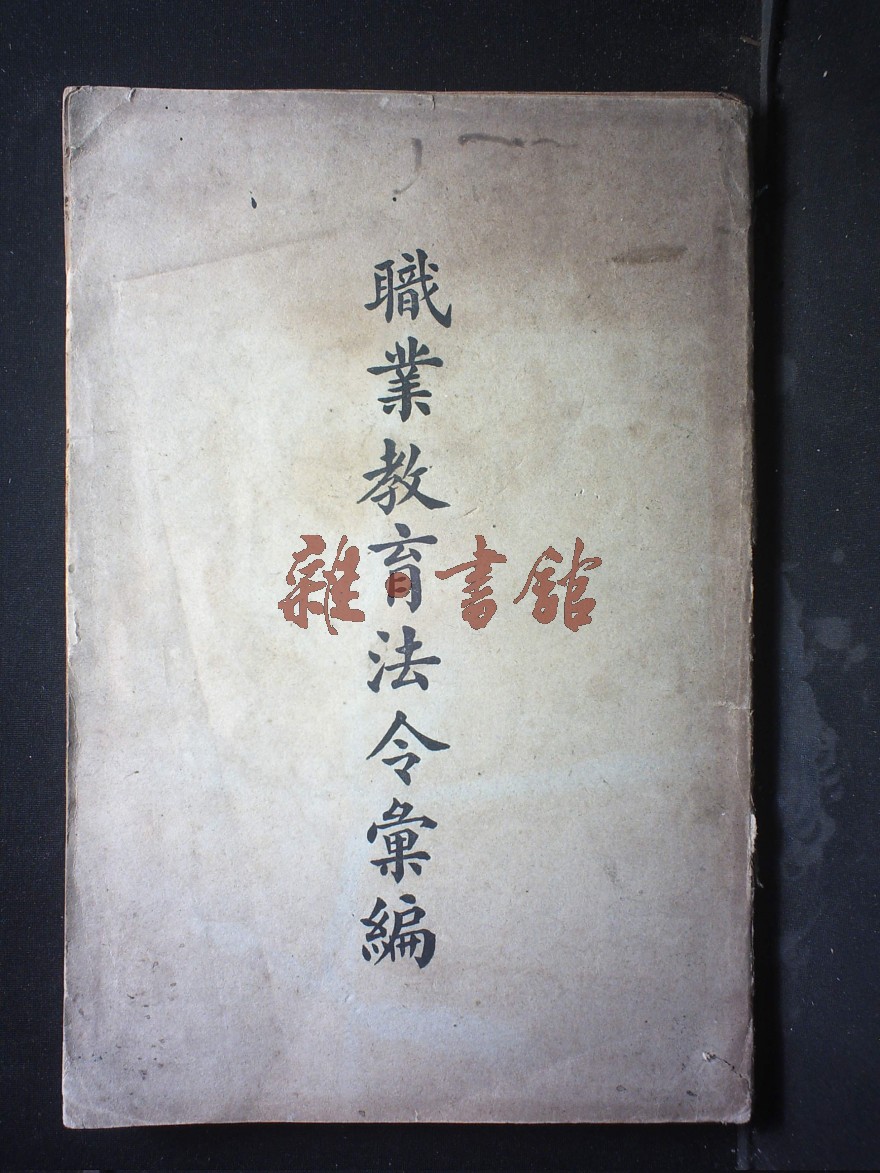 職業教育法令彙編
雜書館